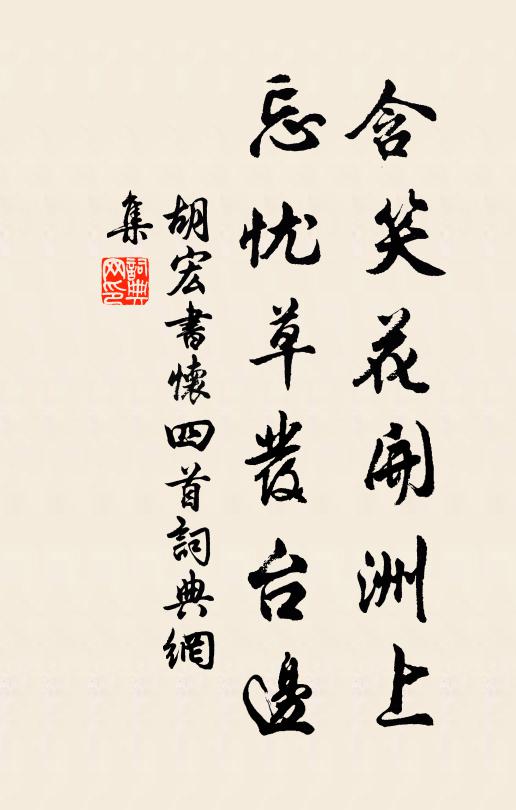 含笑花開洲上
忘忧草發台邊
胡宏書懷四首詞典網
集
詞典
网印